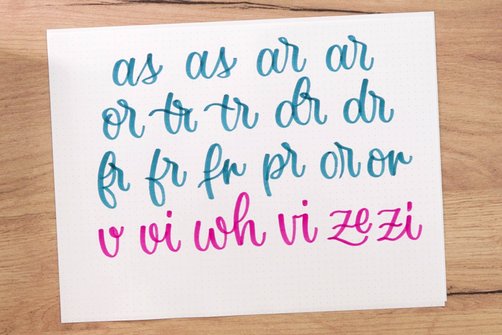 as as ar ar
or tr tr dr dr
fr fr fr pr or or
v vi wh vi ze zi